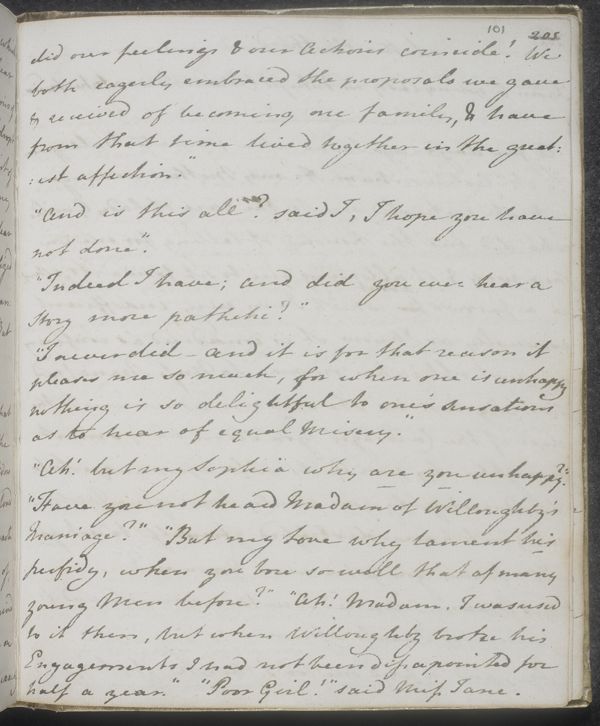 101 205
did our feelings & our Actions coincide! We
both eagerly embraced the proposals we gave
& received of becoming one family, & have
from that time lived together in the great:
:est affection."
"And is this all"? said I, I hope you have
not done".
"Indeed I have; and did you ever hear a
story more pathetic?"
"I never did — and it is for that reason it
pleases me so much, for when one is unhappy
nothing is so delightful to one's sensations
as to hear of equal Misery."
"Ah! but my Sophia why are you unhappy?"
"Have you not heard Madam of Willoughby's
Marriage?" "But my Love why lament his
perfidy, when you bore so well that of many
young Men before?" "Ah! Madam, I was used
to it then, but when Willoughby broke his
Engagements I had not been dissapointed for
half a year." "Poor Girl!" said Miss Jane.